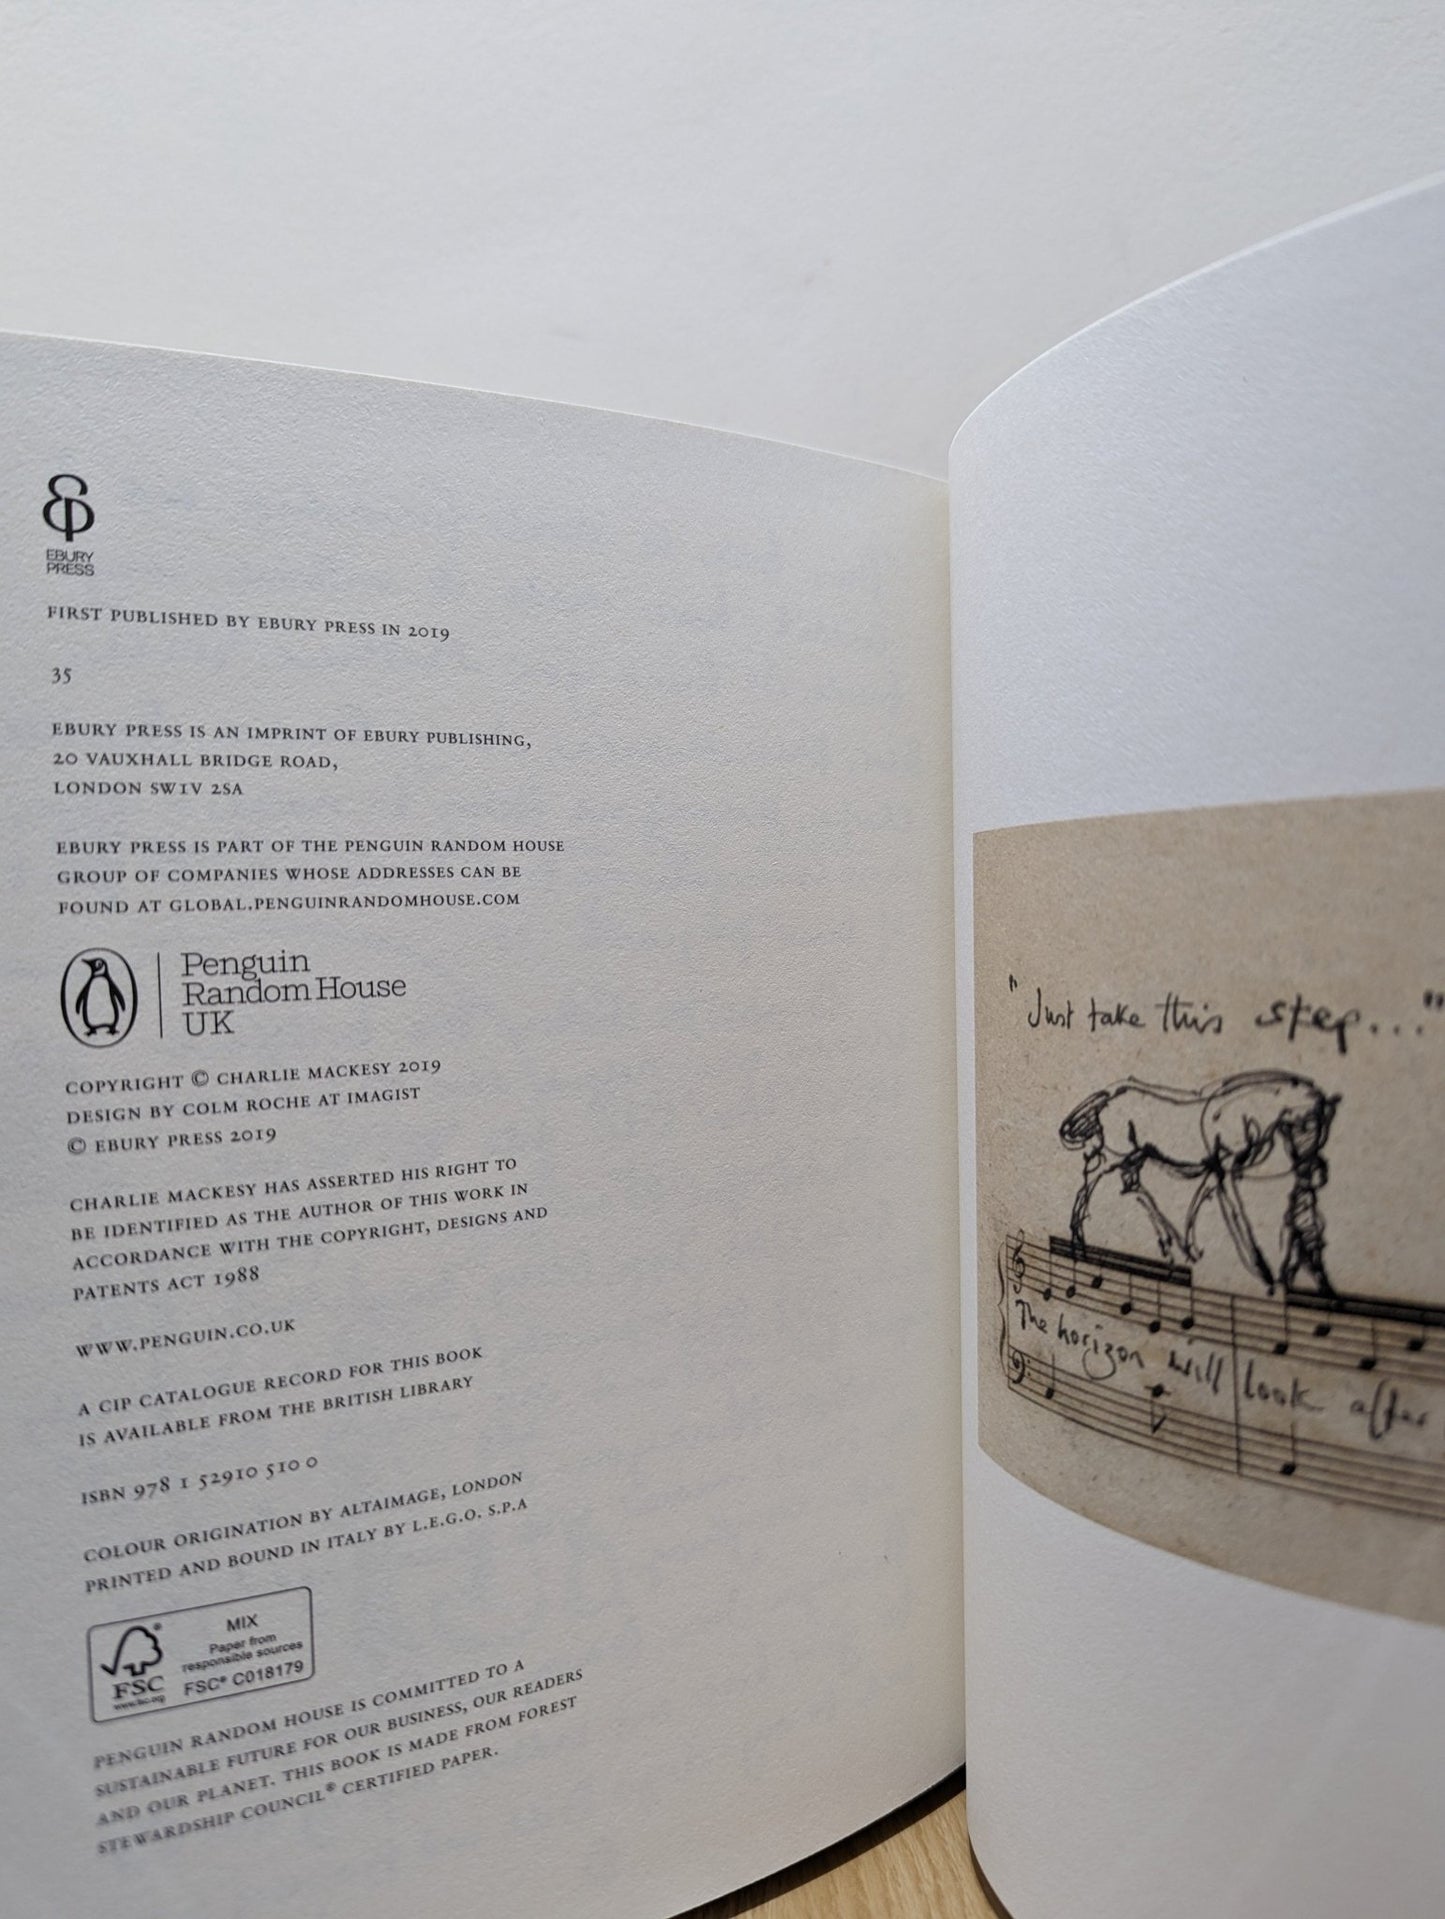 EBURY
PRESS
FIRST PUBLISHED BY EBURY PRESS IN 2019
35
EBURY PRESS IS AN IMPRINT OF EBURY PUBLISHING,
20 VAUXHALL BRIDGE ROAD,
LONDON SW1V 2SA
EBURY PRESS IS PART OF THE PENGUIN RANDOM HOUSE
GROUP OF COMPANIES WHOSE ADDRESSES CAN BE
FOUND AT GLOBAL.PENGUINRANDOMHOUSE.COM
Penguin
Random House
UK
COPYRIGHT © CHARLIE MACKESY 2019
DESIGN BY COLM ROCHE AT IMAGIST
© EBURY PRESS 2019
CHARLIE MACKESY HAS ASSERTED HIS RIGHT TO
BE IDENTIFIED AS THE AUTHOR OF THIS WORK IN
ACCORDANCE WITH THE COPYRIGHT, DESIGNS AND
PATENTS ACT 1988
WWW.PENGUIN.CO.UK
A CIP CATALOGUE RECORD FOR THIS BOOK
IS AVAILABLE FROM THE BRITISH LIBRARY
ISBN 978 1 52910 510 0
COLOUR ORIGINATION BY ALTAIMAGE, LONDON
PRINTED AND BOUND IN ITALY BY L.E.G.O. S.P.A
MIX
Paper from
responsible sources
FSC® C018179
FSC
www.fsc.org
PENGUIN RANDOM HOUSE IS COMMITTED TO A
SUSTAINABLE FUTURE FOR OUR BUSINESS, OUR READERS
AND OUR PLANET. THIS BOOK IS MADE FROM FOREST
STEWARDSHIP COUNCIL® CERTIFIED PAPER.
"Just take this step..."
The horizon will look after